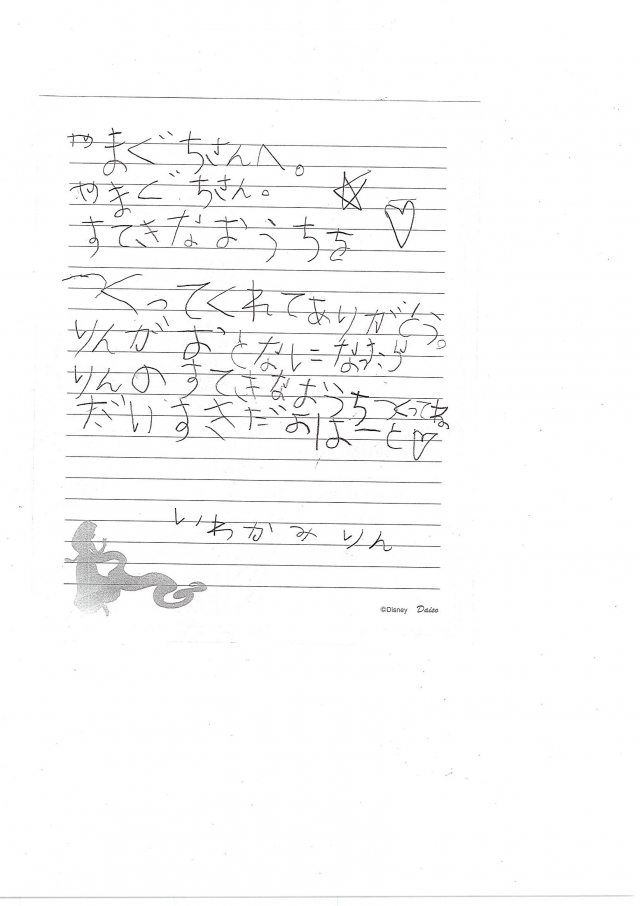 やまぐちさんへ。
やまぐちさん。
すてきなおうちを
つくってくれてありがとう。
りんがおとなになったら
りんのすてきなおうちつくってね。
だいすきだよはーと♡
いわかみりん
©Disney Daiso